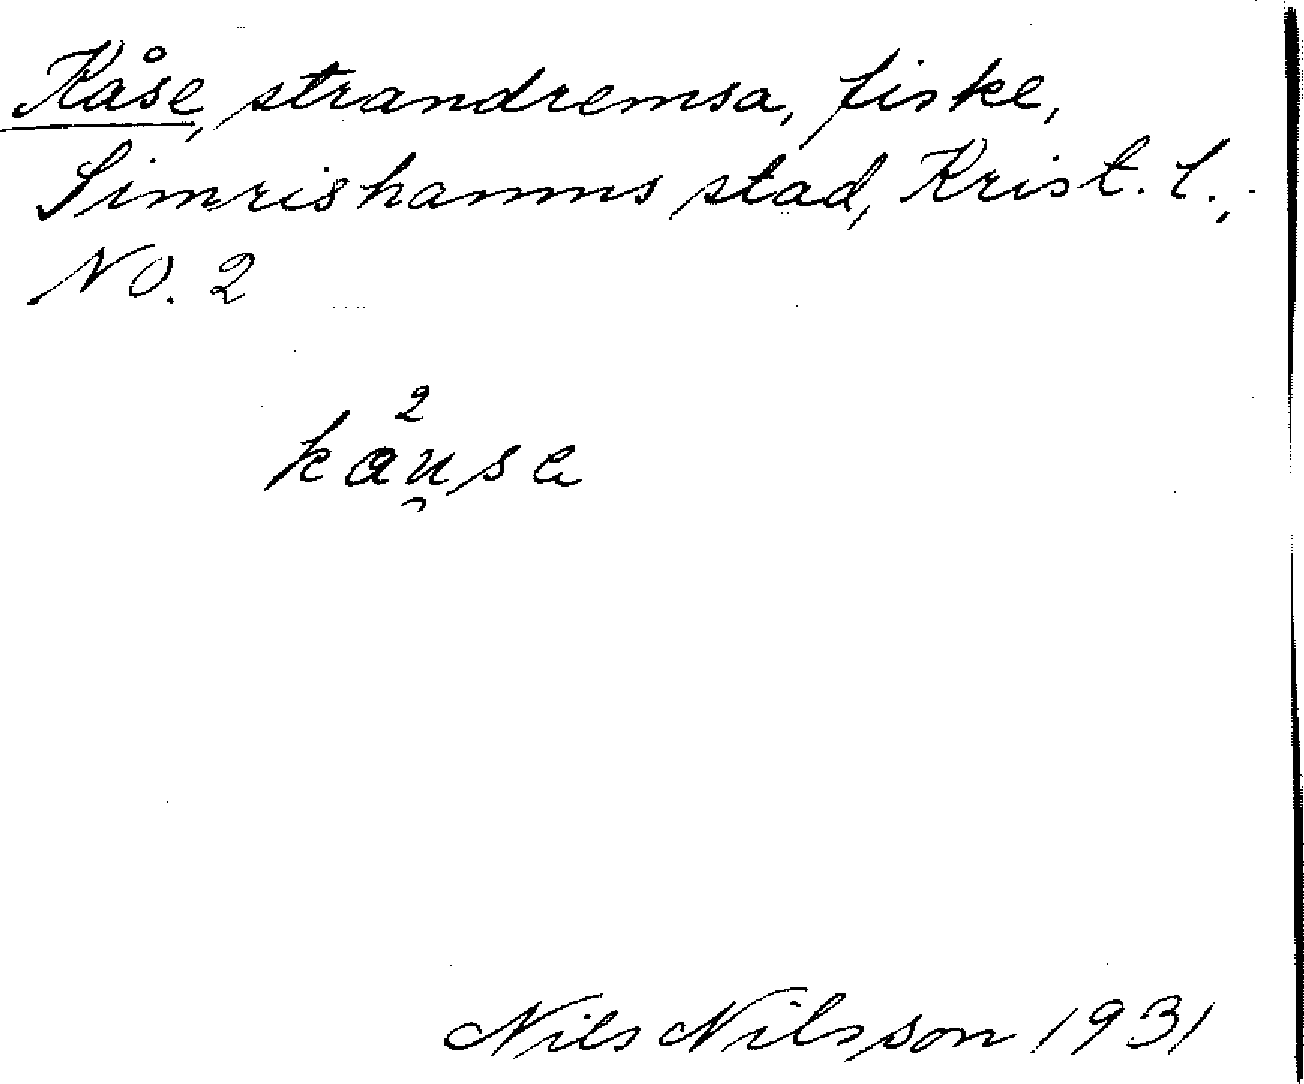 Kåse, strandremsa, fiske,
Simrishamns stad, Krist. l.,
NO. 2
2
kau̯sa
Nils Nilsson 1931